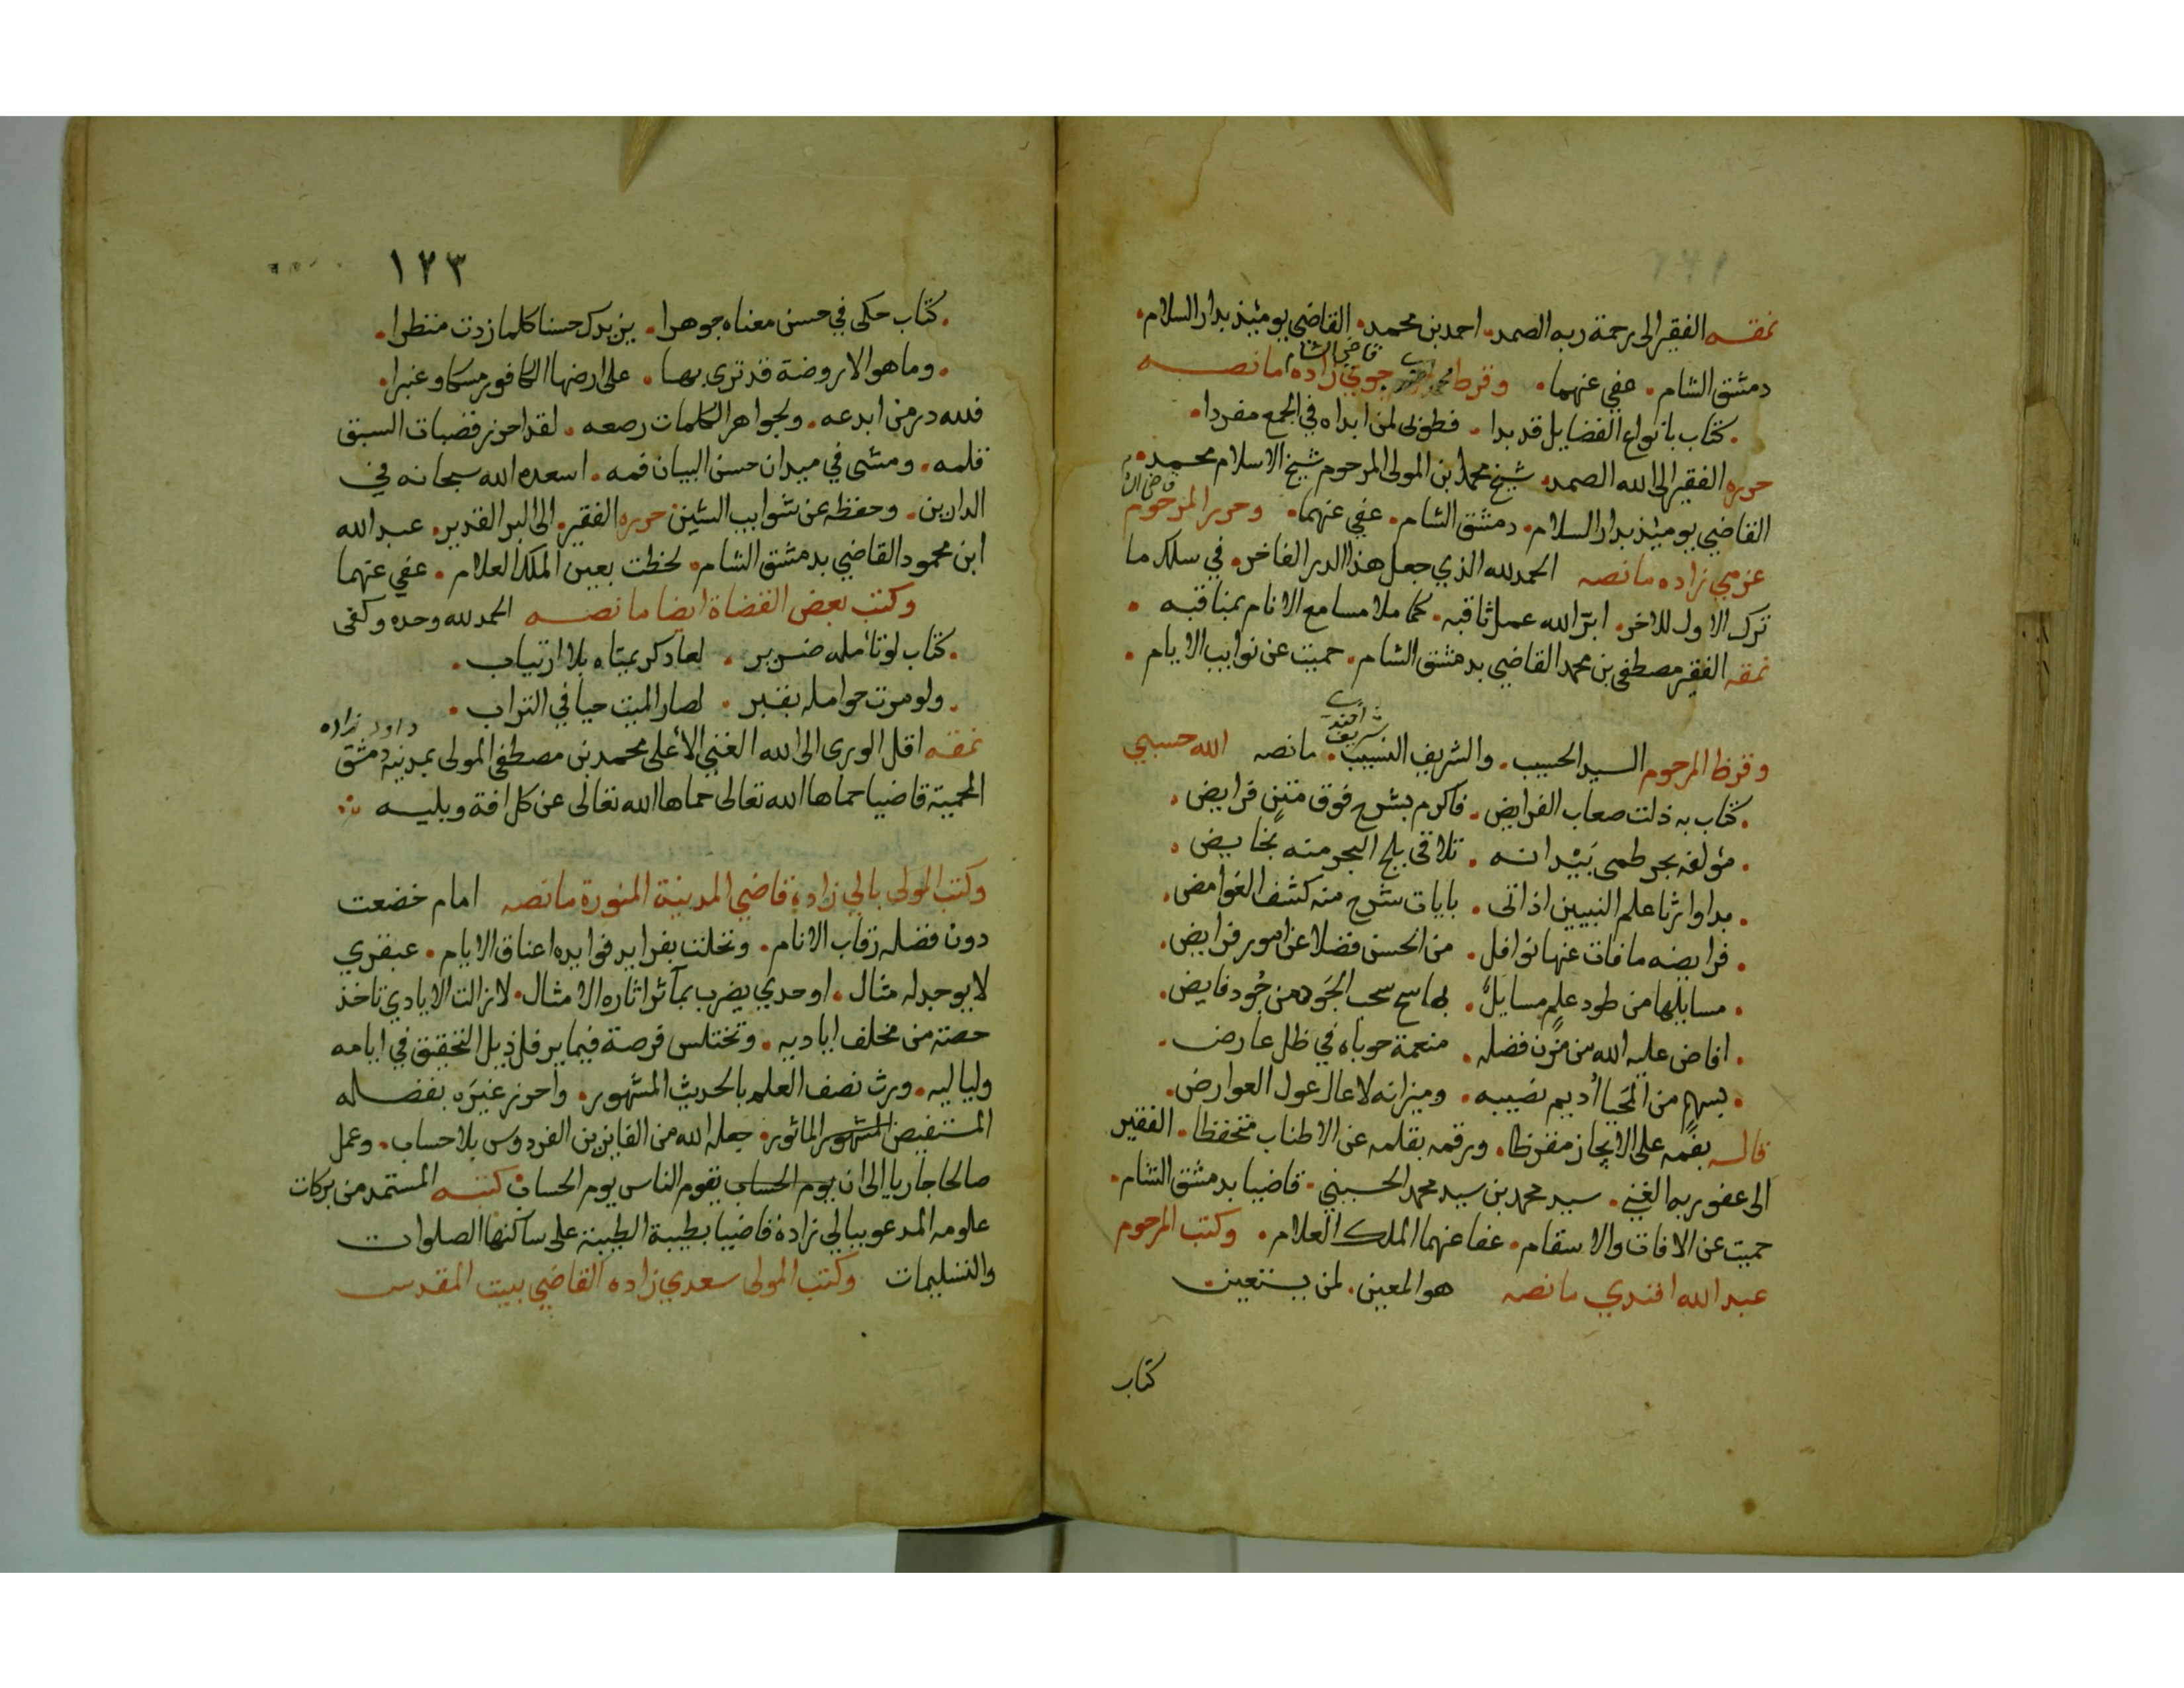 نمقه الفقير الى رحمة ربه الصمد. احمد بن محمد. القاضي يومئذ بدار السلام.
قاضي الشام
دمشق الشام. عفي عنهما. وقرظ جوي زاده ما نصه
كتاب بانواع الفضايل قد بدا. فطوبى لمن ابداه في الجمع مفردا.
حرره الفقير الى الله الصمد. شيخ محمد ابن المولى المرحوم شيخ الاسلام محمد.
القاضي يومئذ بدار السلام. دمشق الشام. عفي عنهما. وحرر المرحوم
عزمي زاده ما نصه الحمد لله الذي جعل هذا الدر الفاخر. في سلك ما
ترك الاول للاخر. ابر الله عمل ثاقبه. كما ملا مسامع الانام بمناقبه.
نمقه الفقير مصطفى بن محمد القاضي بدمشق الشام. حميت عن نوايب الايام.
شريف افندي
وقرظ المرحوم السيد الحبيب. والشريف النسيب. ما نصه الله حسبي
. كتاب به ذلت صعاب الفرايض. فاكرم بشرح فوق متن فرايض.
. مؤلفه بحر طمى بيد انه. تلاقي بلج البحر منه بخايض.
. بدا وارثا علم النبيين اذ اتى. بايات شرح منه كشف الغوامض.
. فرايضه ما فات عنها نوافل. من الحسن فضلا عن امور فرايض.
. مسايلها من طود علم مسايل. بها سح سحب الجود من جود فايض.
. افاض عليه الله من مزن فضله. منعمة حوباه في ظل عارض.
. بسهم من المحيا أديم نصيبه. وميزانه لا عال عول العوارض.
قاله بفمه على الايجاز مقرظا. ورقمه بقلمه عن الاطناب متحفظا. الفقير
الى عفو ربه الغني. سيد محمد بن سيد محمد الحسيني. قاضيا بدمشق الشام.
حميت عن الافات والاسقام. عفا عنهما الملك العلام. وكتب المرحوم
عبد الله افندي ما نصه هو المعين. لمن يستعين
كتاب
١٢٣
. كتاب حكى في حسن معناه جوهرا. يزيدك حسنا كلما زدت منظرا.
. وما هو الا روضة قد ترى بها. على ارضها الكافور مسكا وعنبرا.
فلله در من ابدعه. ولجواهر الكلمات رصعه. لقد احرز قصبات السبق
قلمه. ومشى في ميدان حسن البيان فمه. اسعده الله سبحانه في
الدارين. وحفظه عن شوايب الشين حرره الفقير. الى البر القدير. عبد الله
ابن محمود القاضي بدمشق الشام. لحظت بعين الملك العلام. عفي عنهما
وكتب بعض القضاة ايضا ما نصه الحمد لله وحده وكفى
. كتاب لو تأمله ضرير. لعاد كريمتاه بلا ارتياب.
. ولو مرت حوامله بقبر. لصار الميت حيا في التراب.
داود زاده
نمقه اقل الورى الى الله الغني الأعلى محمد بن مصطفى المولى بمدينة دمشق
المحمية قاضيا حماها الله تعالى حماها الله تعالى عن كل افة وبليه
وكتب المولى بالي زاده قاضي المدينة المنورة ما نصه امام خضعت
دون فضله رقاب الانام. وتحلت بفرايد فوايده اعناق الايام. عبقري
لا يوجد له مثال. اوحدي يضرب بمآثر اثاره الامثال. لا زالت الايادي تاخذ
حصته من مخلف اياديه. وتختلس فرصة فيما يرفل ذيل التحقيق في ايامه
ولياليه. ورث نصف العلم بالحديث المشهور. واحرز غيره بفضله
المستفيض المشهور الماثور. جعله الله من الفايزين الفردوس بلا حساب. وعمل
صالحا جاريا الى ان يوم الحساب يقوم الناس يوم الحساب كتبه المستمد من بركات
علومه المدعو ببالي زاده قاضيا بطيبة الطيبة على ساكنها الصلوات
والتسليمات وكتب المولى سعدي زاده القاضي ببيت المقدس